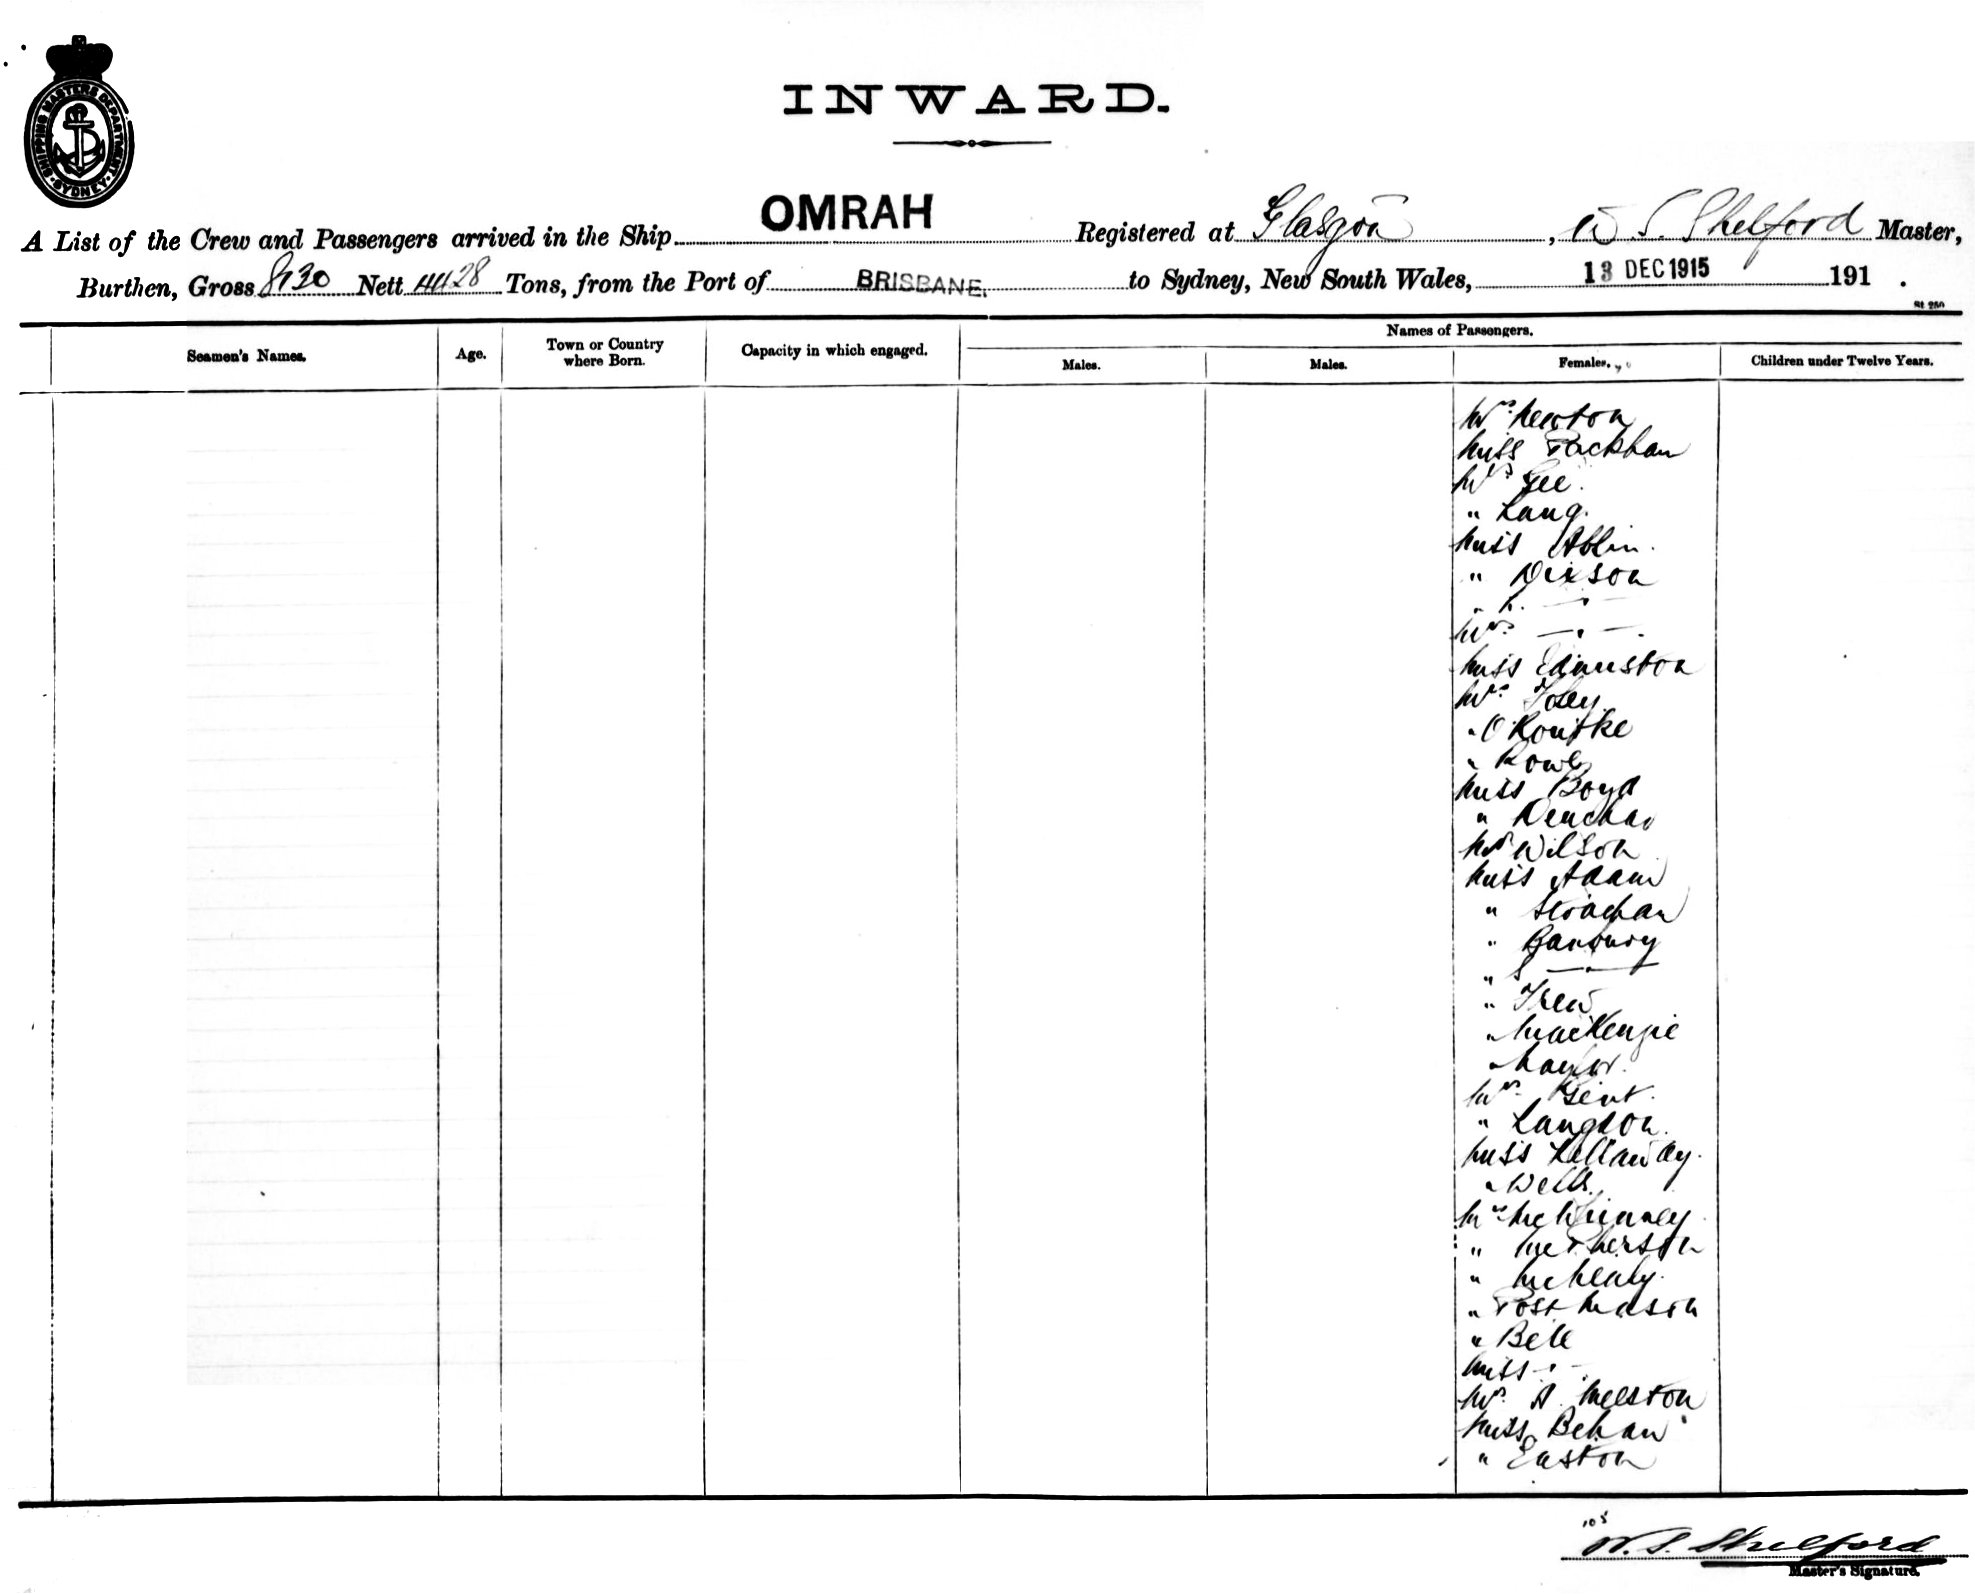 SHIPPING MASTERS DEPARTMENT
SYDNEY
INWARD.
A List of the Crew and Passengers arrived in the Ship OMRAH Registered at Glasgow, W S. Shelford Master,
Burthen, Gross 8130 Nett 4428 Tons, from the Port of BRISBANE. to Sydney, New South Wales, 13 DEC 1915 191 .
St 250
Names of Passengers.
Seamen's Names. Age. Town or Country where Born. Capacity in which engaged. Males. Males. Females. Children under Twelve Years.
Mrs Newton
Miss Packham
Mrs Gee.
" Lang.
Miss Ablin.
" Dixson
" — " —
Mrs — " —
Miss Edmiston
Mrs Foley.
" O'Rourke
" Rowe
Miss Boyd
" Denchar
Mrs Wilson
Miss Adam
" Strachan
" Banbury
" S — " —
" Trew
" MacKenzie
" Naylor.
Mrs Gent.
" Langdon.
Miss Kellaway.
" Wells.
Mrs McKinney
" McPherson
" McNealy.
" Post Mason
" Bell
Miss — " —
Mrs A. Melston
Miss Behan
" Easton
105
W. S. Shelford
Master's Signature.